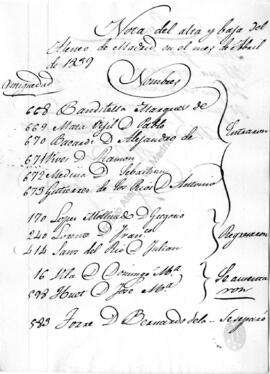 Nota del alta y baja del
Ateneo de Madrid en el mes de Abril
de 1839
Antiguedad
Nombres
668 Marques de
669 Mata Vigil D. Pablo
670 D. Alejandro de
671 Vives D. Ramon
672 Medina D. Sebastian
673 Gutierrez de los Rios D. Antonio
Entraron
170 Lopez D. Gregorio
240 Lorente D. Franco
414 Sanz del Rio D. Julian
Regresaron
16 Vila D. Domingo Ma
598 Huet D. Jose Ma
Se ausenta
ron
583 Torre D. Bernardo de la Se separó